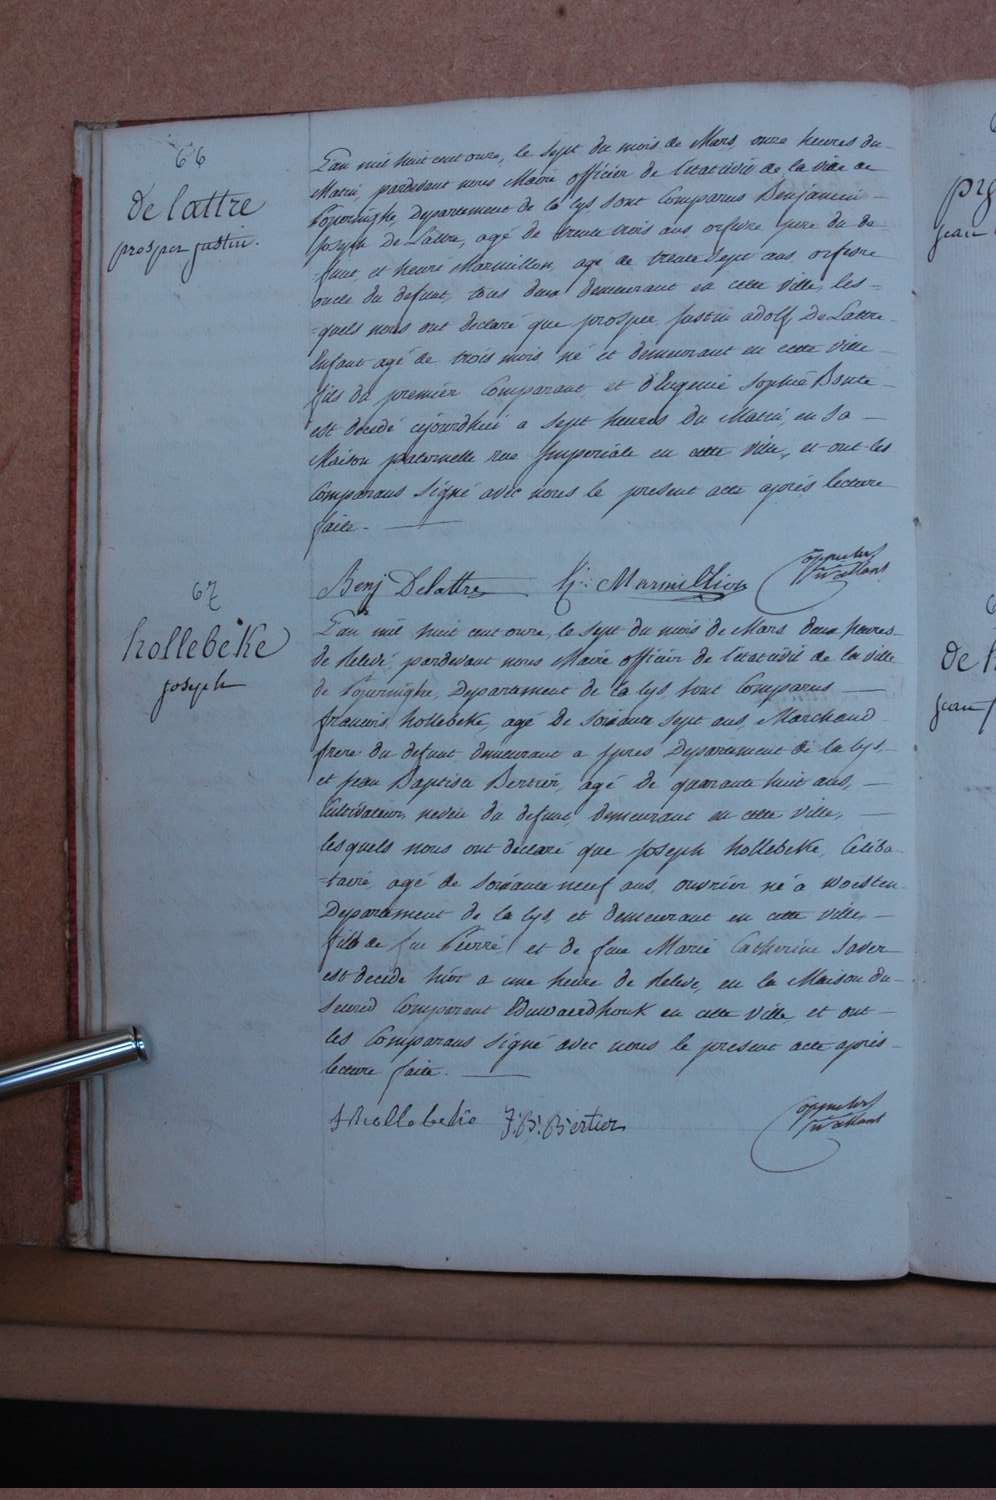 66
De lattre
prosper justin.
L'an mil huit cent onze, le sept du mois de Mars, onze heures du
Matin, pardevant nous Maire officier de l'état civil de la ville de
Poperinghe, Departement de la lys sont Comparus Benjamin
Joseph De Lattre, agé de trente trois ans, orfevre pere du de
funt, et henri Marmillon, agé de trente sept ans, orfevre
oncle du defunt, tous deux demeurant en cette ville, les=
=quels nous ont declaré que prosper Justin adolf De Lattre
Enfant agé de trois mois, né et demeurant en cette ville
fils du premier Comparant, et d'Eugenie Sophie Bonte
est decedé cejourdhui a sept heures du Matin, en sa —
Maison paternelle rue Imperiale en cette ville, et ont les
Comparans signé avec nous le present acte après lecture
faite. —
Benj Delattre h: Marmillion
67
hollebeke
joseph
L'an mil huit cent onze, le sept du mois de Mars deux heures
de Relevé, pardevant nous Maire officier de l'état civil de la ville
de Poperinghe, Departement de la lys, sont Comparus —
francois hollebeke, agé de soixante sept ans, Marchand
frere du defunt demeurant a ypres Departement de la lys,
et jean Baptiste Bertier, agé de quarante huit ans, —
Cultivateur, neveu du defunt, demeurant en cette ville, —
lesquels nous ont declaré que joseph hollebeke, Céliba=
=taire, agé de soixante neuf ans, ouvrier né a woesten
Departement de la lys, et demeurant en cette ville, —
fils de feu Pierre, et de feue Marie Catherine Saver
est decedé hier a une heure de Relevé, en la Maison du
second Comparant Eduwaerdhouk en cette ville et ont —
les Comparans signé avec nous le present acte après
lecture faite. —
f hollebeke J: B: Bertier
pr
jean
De h
jean